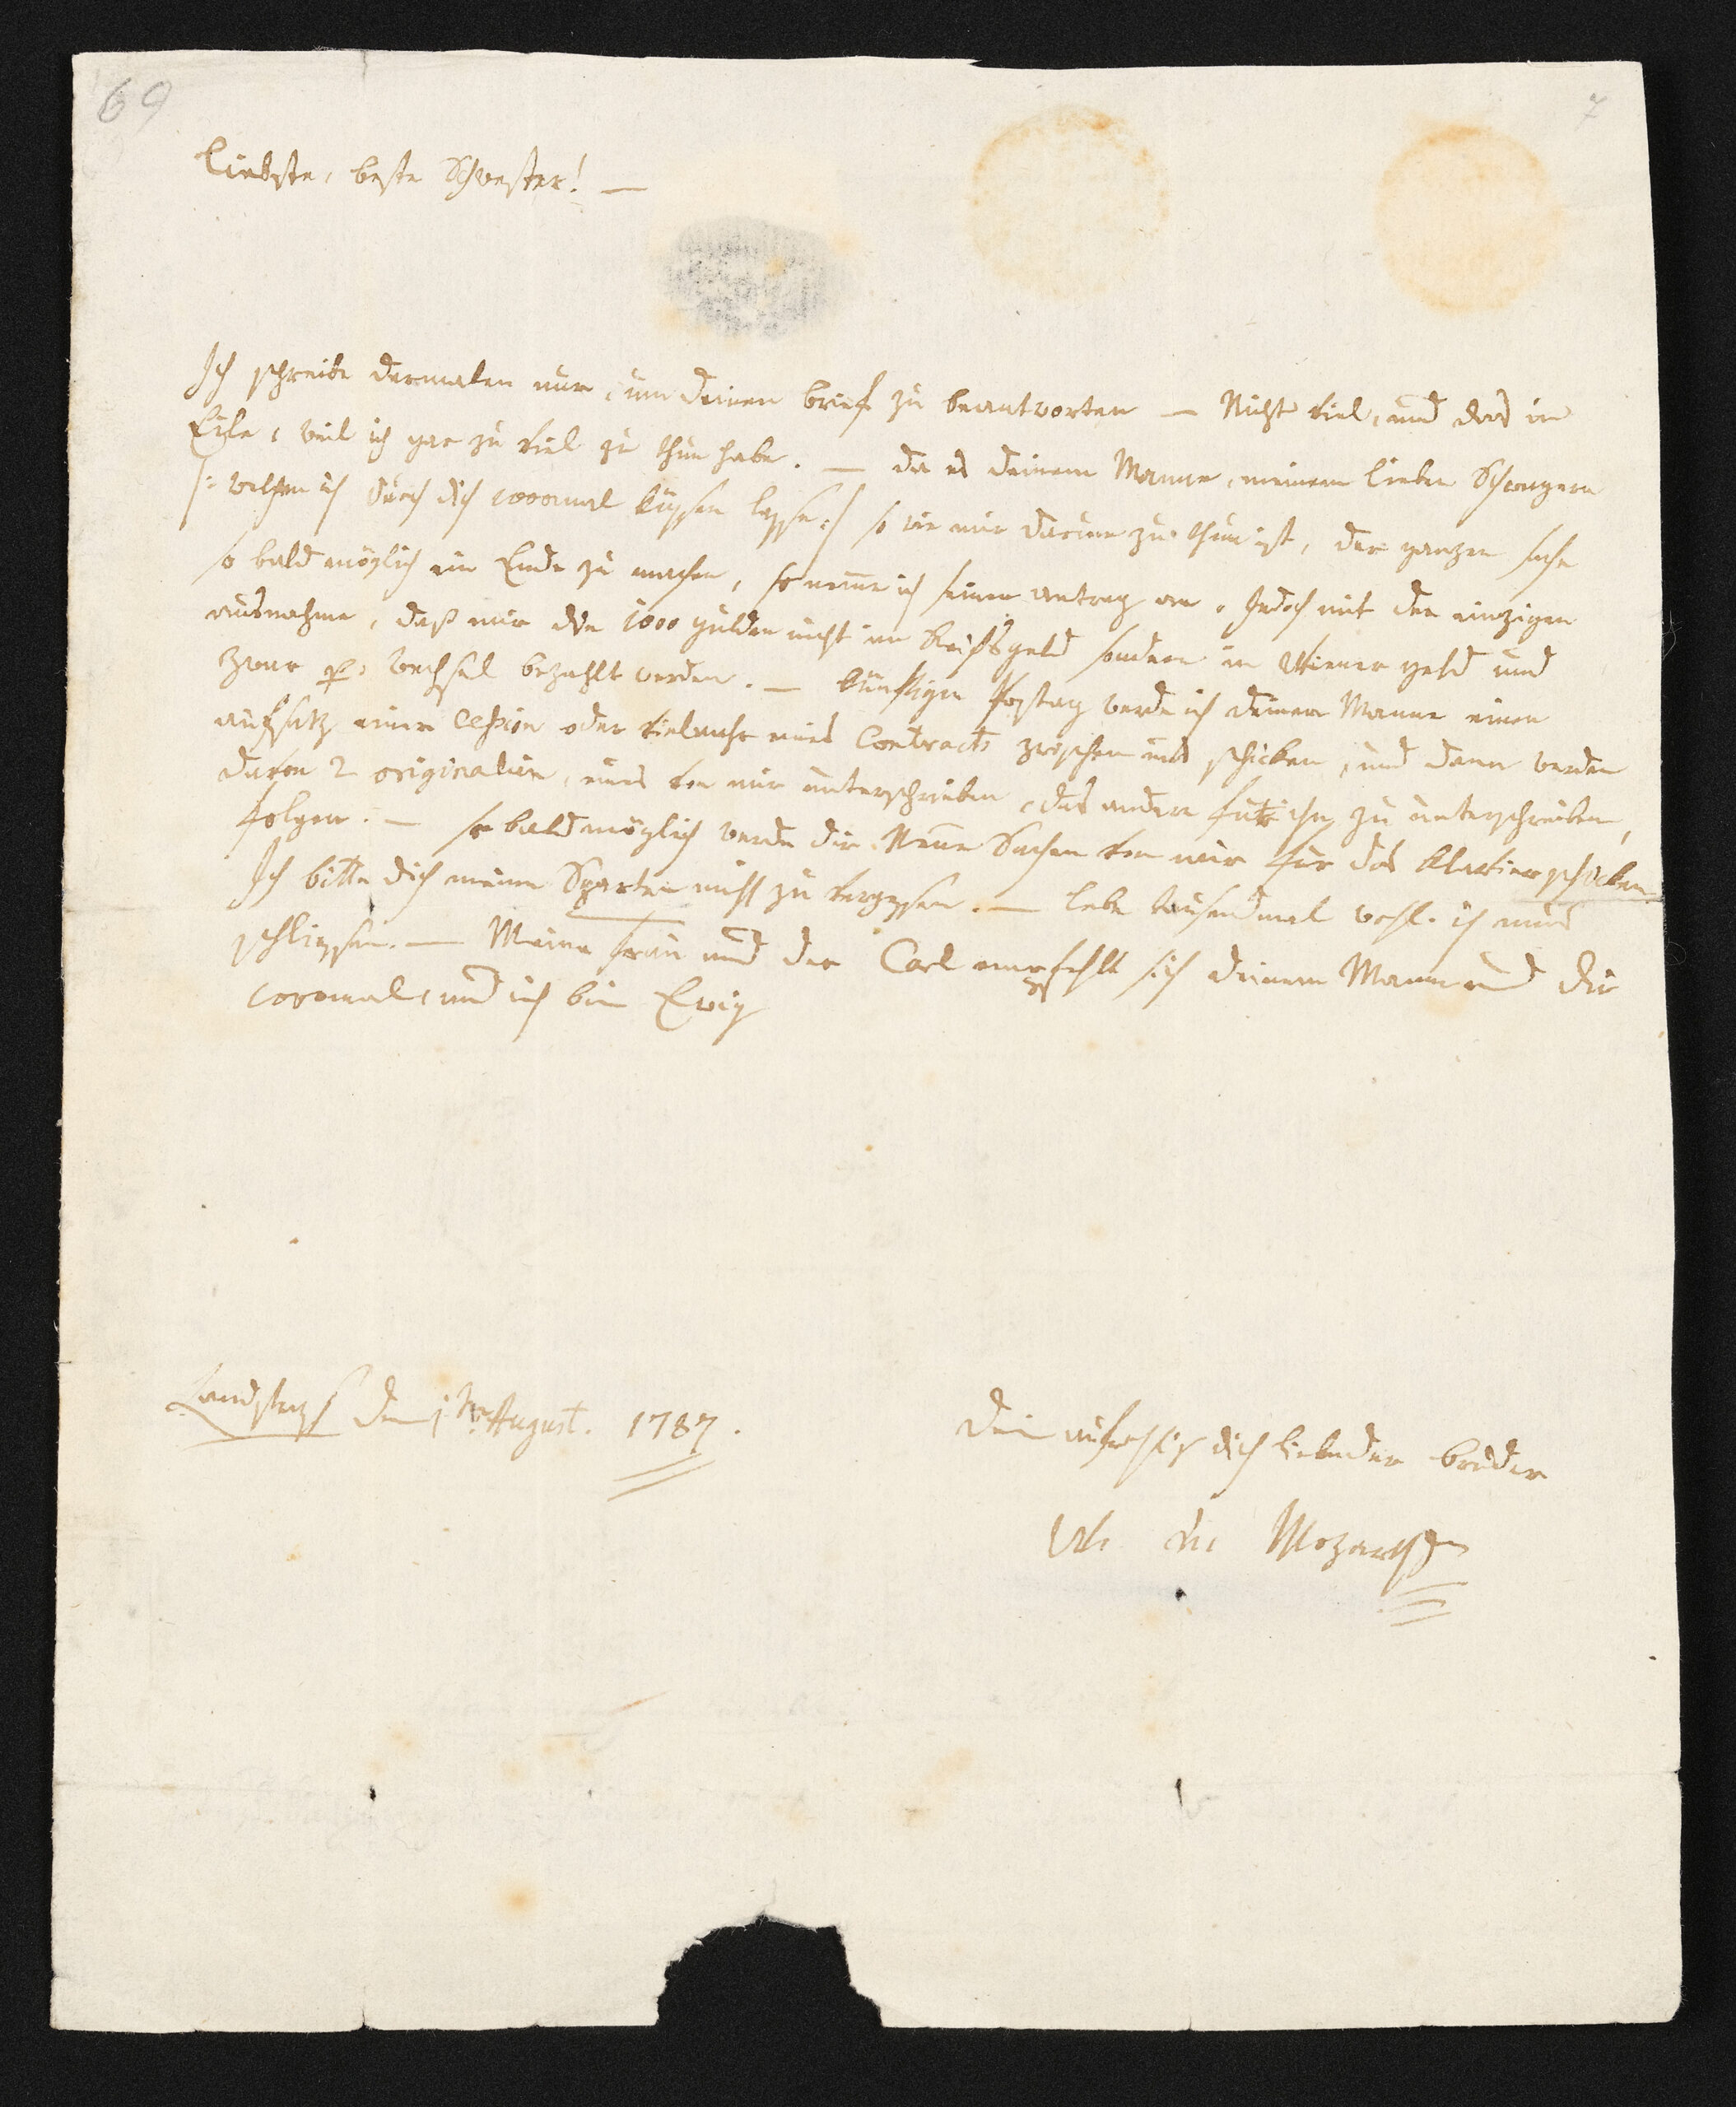 69
7
Liebste, beste Schwester! —
Ich schreibe dermalen nur, um deinen brief zu beantworten — Nicht viel, und das in
Eile, weil ich gar zu viel zu thun habe. — da es deinem Manne, meinem lieben Schwagern
|: welchen ich durch dich 1000mal küssen lasse :| so wie mir darum zu thun ist, der ganzen sache
so bald möglich ein Ende zu machen, so nehme ich seinen antrag an. Jedoch mit der einzigen
ausnahme, daß mir die 1000 gulden nicht im Reichsgeld sondern in Wiener geld und
zwar per Wechsel bezahlt werden. — künftigen Posttag werde ich deinem Manne einen
aufsatz einer Cession oder vielmehr eines Contracts zwischen uns schicken, und dann werden
davon 2 originalien, eines von mir unterschrieben, das andere für ihn zu unterschreiben,
folgen. — so bald möglich werde dir Neue Sachen von mir für das klavier schicken.
Ich bitte dich meine Sparten nicht zu vergessen. — lebe tausendmal wohl. ich muß
schliessen. — Meine Frau und der Carl empfehlt sich deinem Mann und dir
1000mal, und ich bin Ewig
Landstrass den 1:ten August. 1787.
Dein aufrichtig dich liebender bruder
W: A: Mozart